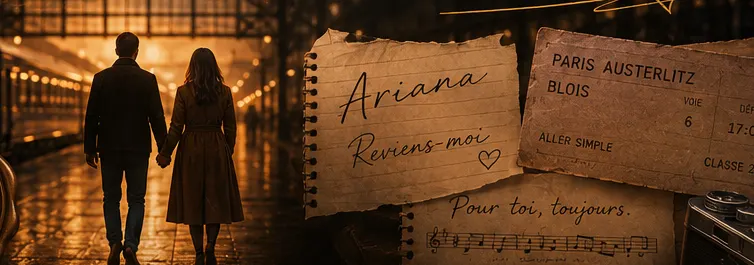 Ariana
Reviens-moi
Pour toi, toujours.
PARIS AUSTERLITZ
BLOIS
VOIE
6
17:0
ALLER SIMPLE
CLASSE 2